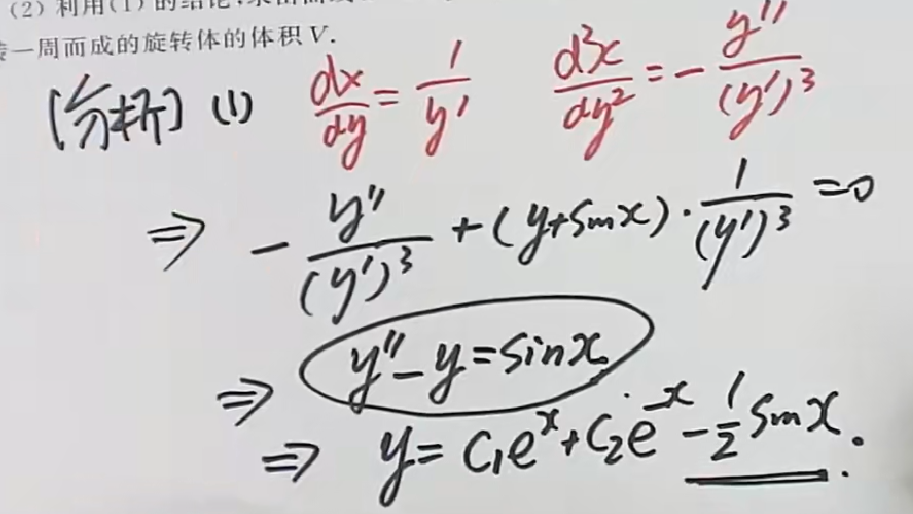 (2) 利用(1)的结论,
一周而成的旋转体的体积 V.
[分析] (1) dx/dy = 1/y' d²x/dy² = - y''/(y')³
⇒ - y''/(y')³ + (y+sinx) · 1/(y')³ = 0
⇒ y'' - y = sinx
⇒ y = C₁eˣ + C₂e⁻ˣ - 1/2 sinx.